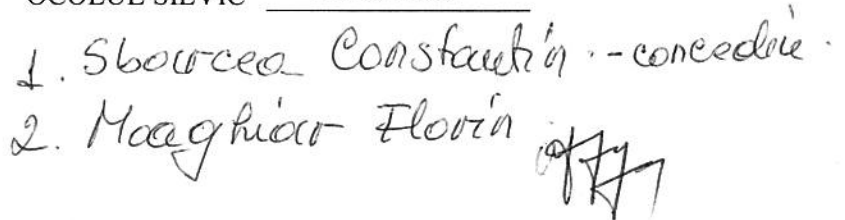 OCOLUL SILVIC
1. Sbourcea Constantin - concediu.
2. Maaghiar Florin